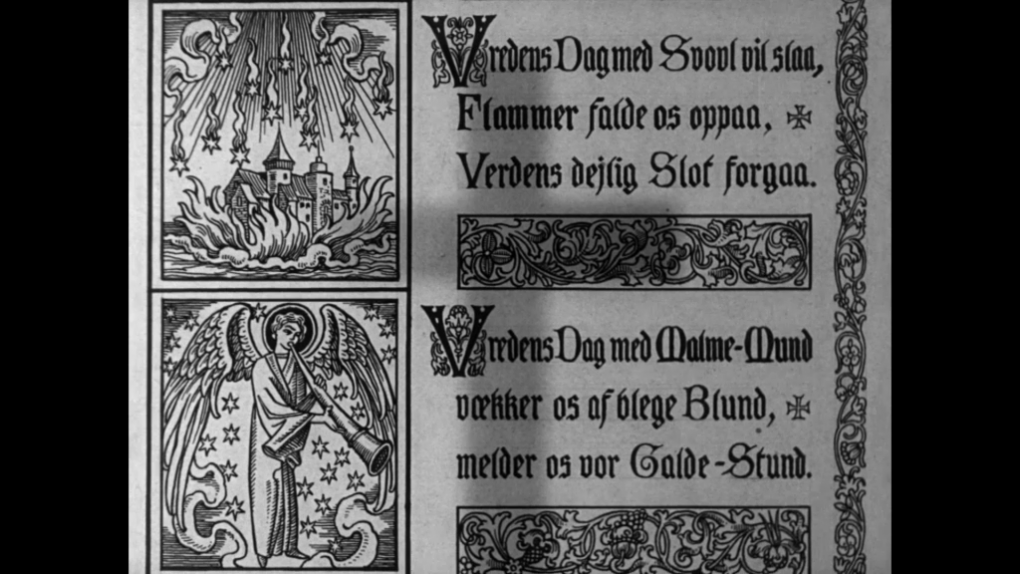 Vredens Dag med Svovl vil slaa,
Flammer falde os oppaa, ✠
Verdens dejlig Slot forgaa.
Vredens Dag med Malme-Mund
vækker os af blege Blund, ✠
melder os vor Galde-Stund.